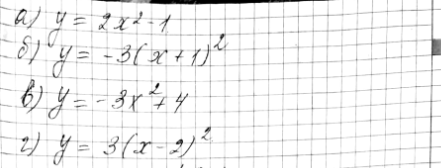 а) y = 2x² - 1
б) y = -3(x + 1)²
в) y = -3x² + 4
г) y = 3(x - 2)²